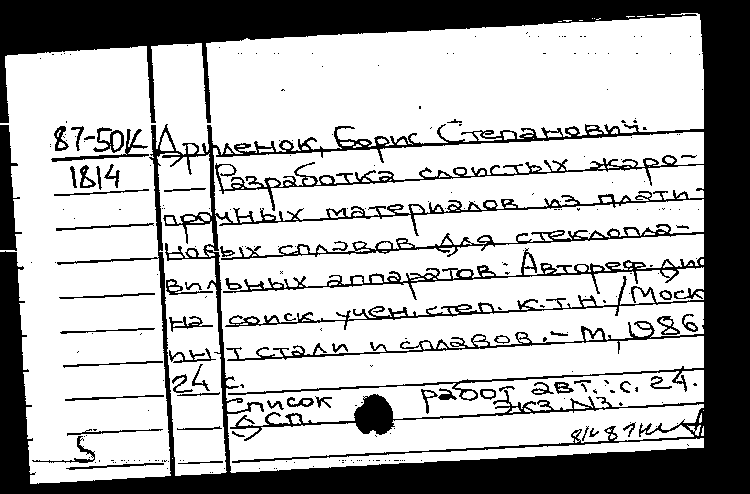 87-50К Дриленок, Борис Степанович.
1814 Разработка слоистых жаро-
прочных материалов из плати-
новых сплавов для стеклопла-
вильных аппаратов: Автореф. дис
на соиск. учен. степ. к.т.н. / Моск
ин-т стали и сплавов. - М., 1986.
24 с.
Список работ авт.: с. 24.
ДСП. Экз. N3.
5